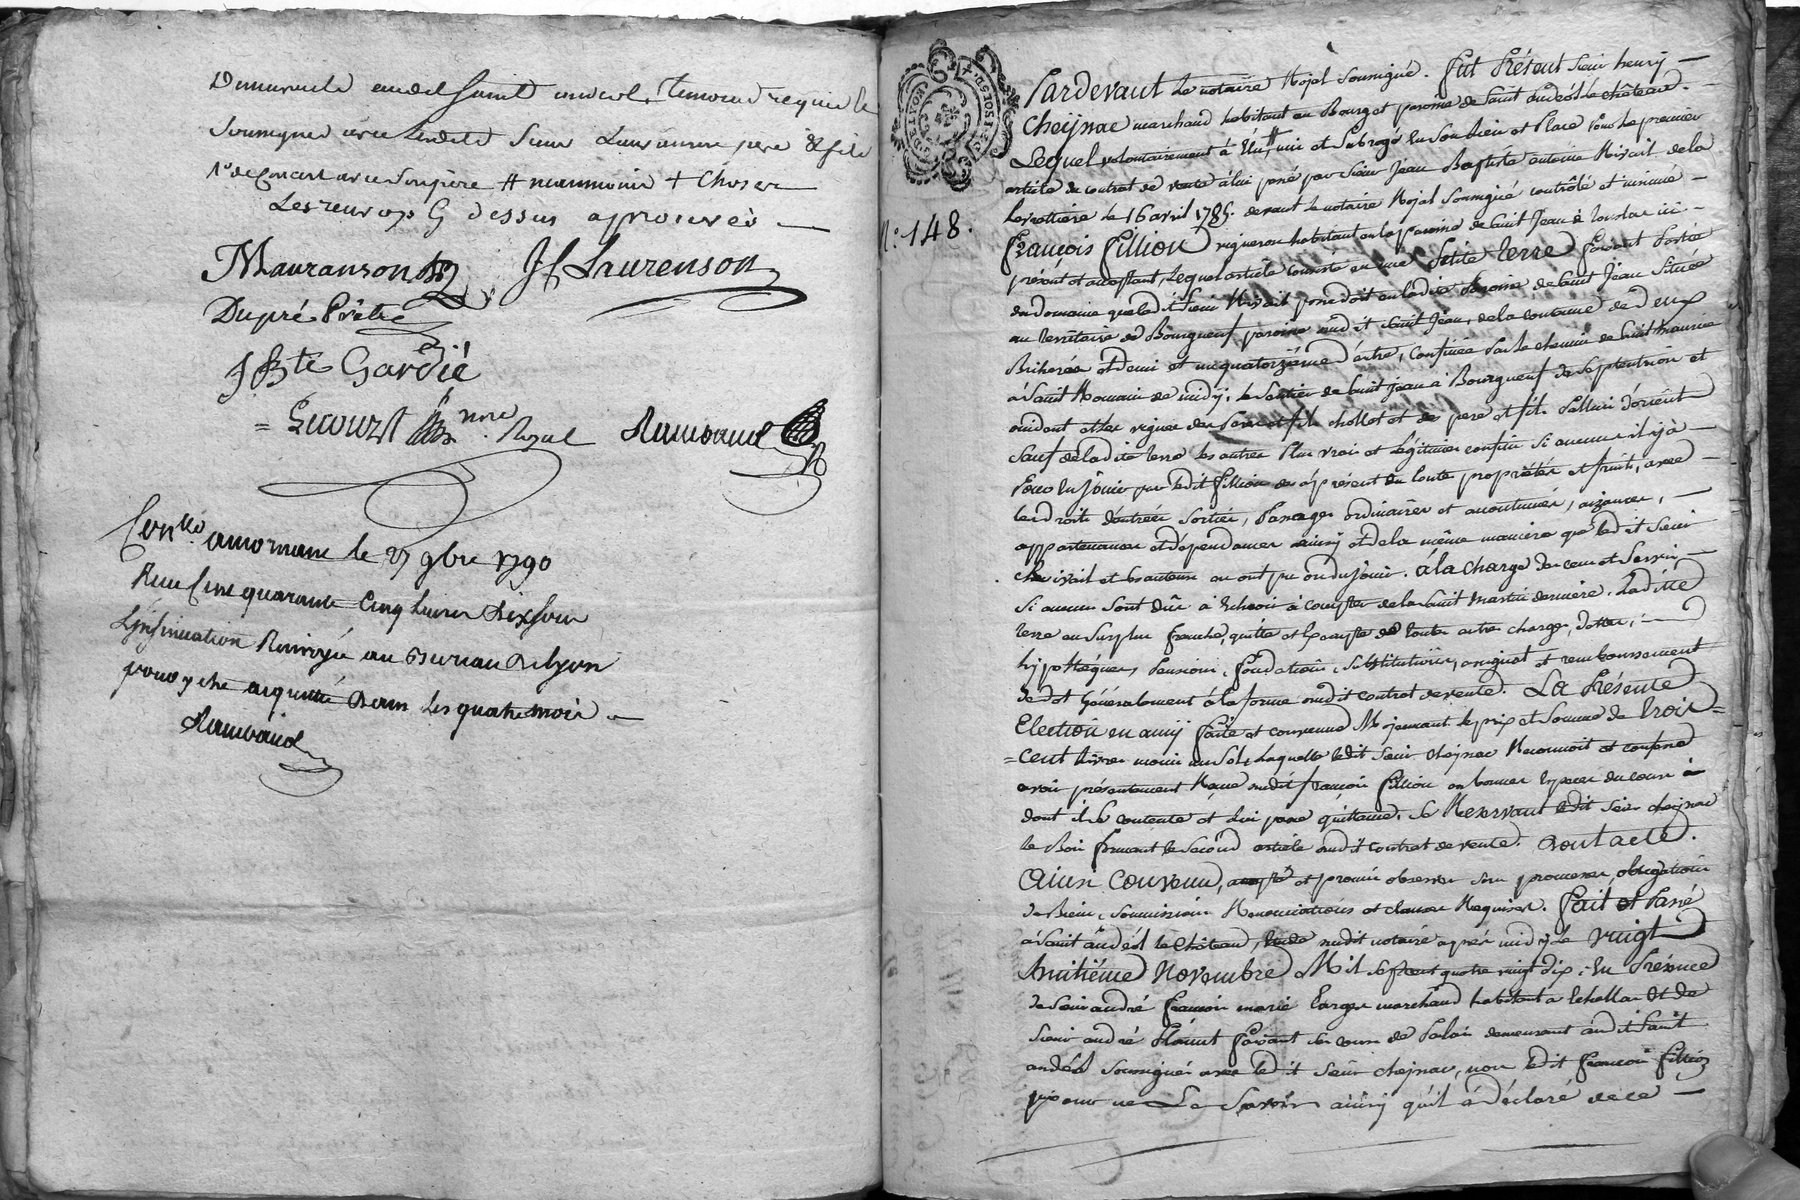 Demeurants audit Saint andeol, temoins requis &
Soussignés avec lesdits Sieurs Laurenson pere & fils
# neanmoins + Choses
Les renvoys cy dessus aprouvés
Mauranson J f Laurenson
Dupré Prêtre
J Bte Gardié
Royal Rambaud
Con.llé a mornant le 27 9bre 1790
Reçu Cent quarante Cinq Livres Dix Sous
L'insinuation Renvoyée au Bureau de lyon
pour y etre acquitté dans les quatre mois
Rambaud
Pardevant le notaire Royal Soussigné. fut Présent Sieur henry
Cheÿnac marchand habitant au Bourg et paroisse de Saint andéol le château.
Lequel volontairement à Elu, # mis et Subrogé en Son Lieu et Place Pour le premier
article du contrat de vente à lui passé par Sieur Jean Baptiste antoine de la
le 16 avril 1785. devant le notaire Royal Soussigné contrôlé et insinué
N.º 148.
François fillion vigneron habitant en la paroisse de Saint Jean de Touslas ici
présent et acceptant, Lequel article consiste en une Petite Terre faisant Partie
du domaine que ledit Sieur possedoit en ladite Paroisse de Saint Jean Située
au territoire de Bourgneuf, paroisse dudit Saint Jean, de la contenue de deux
Bicherées et demi et un quatorzième d'autre, confinée Par le chemin de Saint Maurice
à Saint Romain de midy; le Sentier de Saint Jean à Bourgneuf de Septentrion et
occident et les vignes des Pere et fils chollet et des pere et fils d'orient
Sauf de ladite terre les autres Plus vrais et Légitimes confins Si aucuns il y à
Pour En Joüir par ledit fillion dès àprésent en toute propriétés et fruits, avec
les droits d'entrées Sorties, Passages ordinaires et accoutumés, aizances,
appartenances et dépendances ainsy et de la même maniere que ledit Sieur
et Ses auteurs en ont pu ou du Joüir. à la charge des cens et Servis,
Si aucuns Sont dûs à Echeoir à compter de la Saint Martin derniere. Laditte
terre au Surplus franche, quitte et Exempte de toutes autres charges, dettes,
hypothèques, Pensions, fondations, Substitutions, et remboursement
de dot Généralement à la forme dudit contrat de vente. La Présente
Election en amy faite et convenue Mojennant le prix et Somme de trois
cent livres moins un Sol, Laquelle ledit Sieur Cheÿnac Reconnoit et confesse
avoir présentement Reçue dudit françois fillion en bonnes Especes du cours
dont il Se contente et L'en passe quittance. Se Reservant ledit Sieur cheÿnac
le Bois formant le Second article dudit contrat de vente. Dont acte.
Ainsi Convenu, accepté et promis observer Sous promesses, obligations
de Biens, Soumissions Renonciations et clauses Requises. fait et Passé
à Saint andéol le Château, Etude dudit notaire après midy le vingt
huitième Novembre Mil Sept cent quatre vingt dix; En Présence
de Sieur andré françois marie marchand habitant à Echallas Et de
Sieur andré faisant Ses cours de Palais demeurant audit Saint
andéol Soussignés avec ledit Sieur cheÿnac, non ledit françois fillion
pour ne Le Savoir ainsy qu'il à déclaré de ce